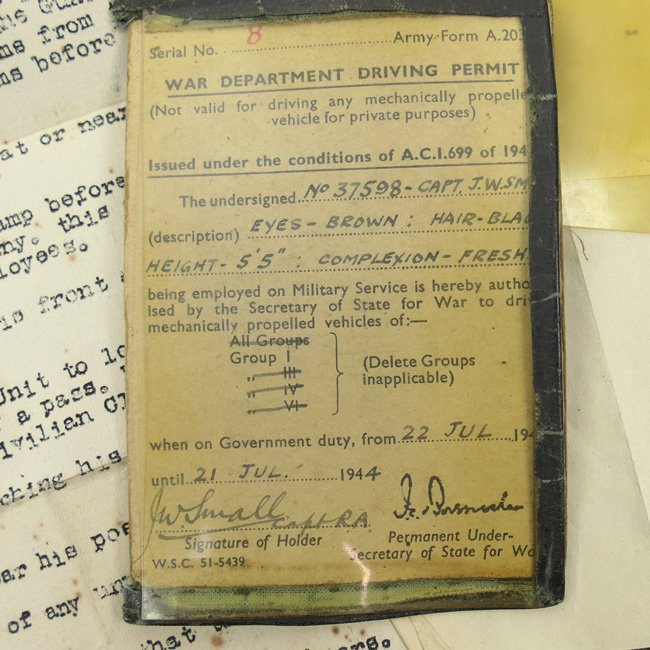 Serial No. 8 Army Form A.203
WAR DEPARTMENT DRIVING PERMIT
(Not valid for driving any mechanically propelle
vehicle for private purposes)
Issued under the conditions of A.C.I.699 of 194
The undersigned No 37598 - CAPT. J.W.SM
(description) EYES - BROWN : HAIR - BLA
HEIGHT - 5'5" : COMPLEXION - FRESH
being employed on Military Service is hereby autho
ised by the Secretary of State for War to driv
mechanically propelled vehicles of:—
All Groups
Group I
„ III
„ IV
„ VI
(Delete Groups
inapplicable)
when on Government duty, from 22 JUL 194
until 21 JUL. 1944
JWSmall Capt R.A.
Signature of Holder
Permanent Under-
Secretary of State for Wa
W.S.C. 51-5439
ms from
ns before
at or near
amp before
ny. this
loyees.
is front
Unit to lo
a pass.
ivilian Cl
ching his
ar his pos
of any un
that